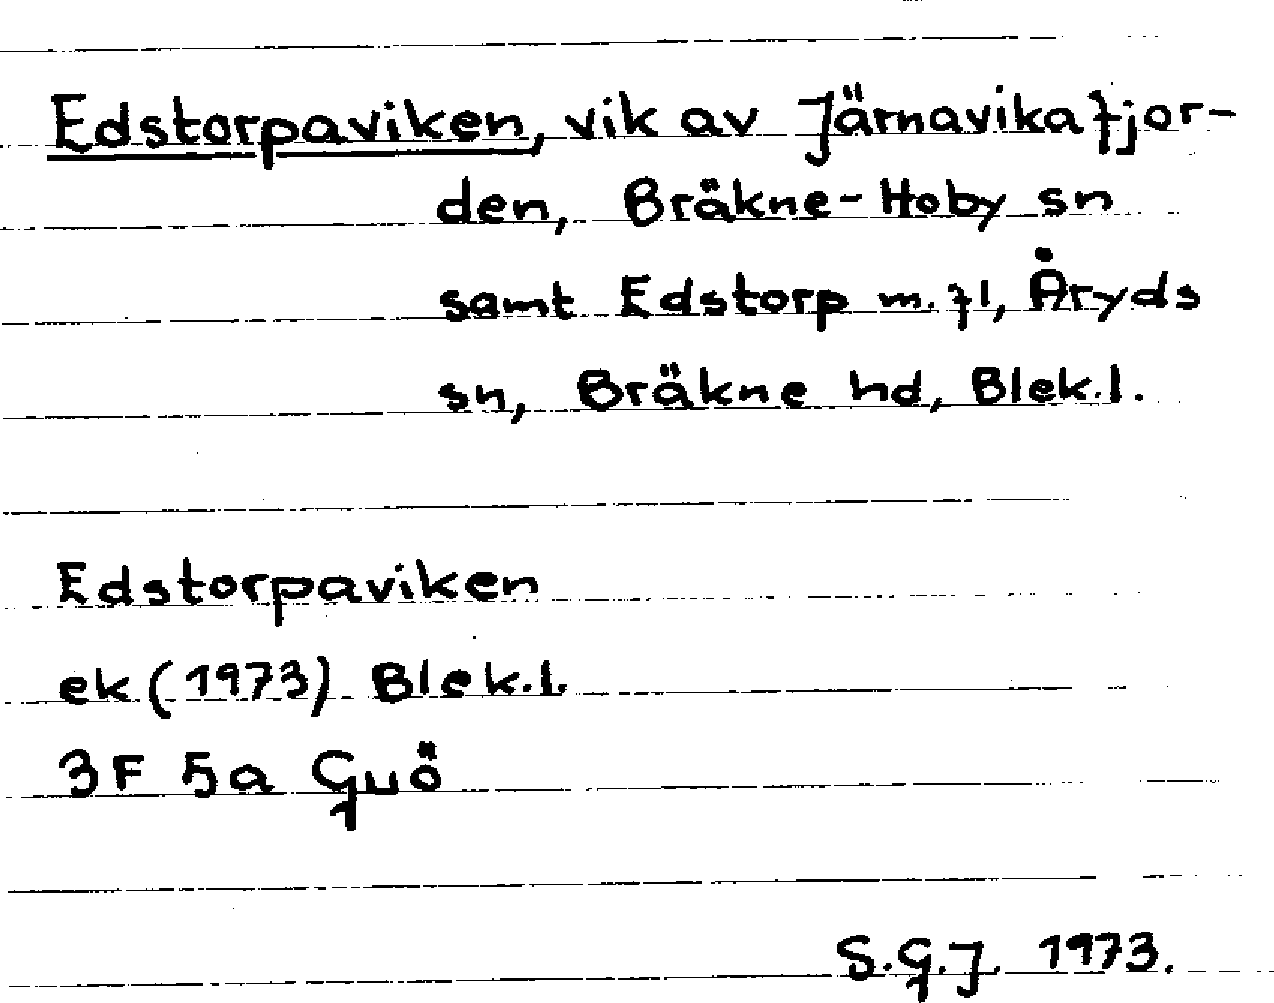 Edstorpaviken, vik av Järnavikafjor-
den, Bräkne-Hoby sn
samt Edstorp m.fl, Åryds
sn, Bräkne hd, Blek.l.
Edstorpaviken
ek (1973) Blek.l.
3F 5a Guö
S.G.J. 1973.